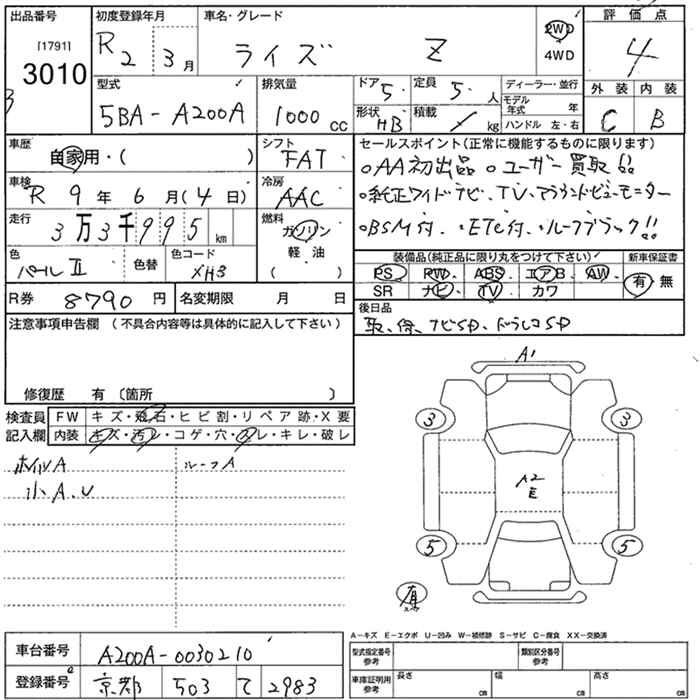 出品番号 [1791] 3010
初度登録年月 R2 3月
車名・グレード ライズ Z
2WD 4WD
評価点 4
外装 C 内装 B
型式 5BA-A200A
排気量 1000 CC
ドア 5 定員 5 人
形状 HB 積載 / kg
ディーラー・並行
モデル年式 年
ハンドル 左・右
車歴 自家用・( )
シフト FAT
車検 R 9年 6月(4日)
冷房 AAC
走行 3万3千995 km
燃料 ガソリン 軽油 ( )
色 パールII 色替 色コード XH3
R券 8790円 名変期限 月 日
セールスポイント(正常に機能するものに限ります)
○AA初出品 ○ユーザー買取品
・純正ワイドナビ、TV、アラウンドビューモニター
○BSM付、○ETC付、○ルーフブラック!!
装備品(純正品に限り丸をつけて下さい) 新車保証書
PS PW ABS エアB AW 有・無
SR ナビ TV カワ
後日品
取、保、ナビSD、ドラレコSD
注意事項申告欄(不具合内容等は具体的に記入して下さい)
修復歴 有〔箇所 〕
検査員記入欄
FW キズ・飛石・ヒビ割・リペア跡・X要
内装 キズ・汚レ・コゲ・穴・スレ・キレ・破レ
ホイルA ルーフA
小A、U
A1
3 3
A2
E
5 5
A-キズ E-エクボ U-凹み W-補修跡 S-サビ C-腐食 XX-交換済
車台番号 A200A-0030210
登録番号 京都 503 て 2983
型式指定番号 参考 類別区分番号 参考
車庫証明用 参考 長さ cm 幅 cm 高さ cm